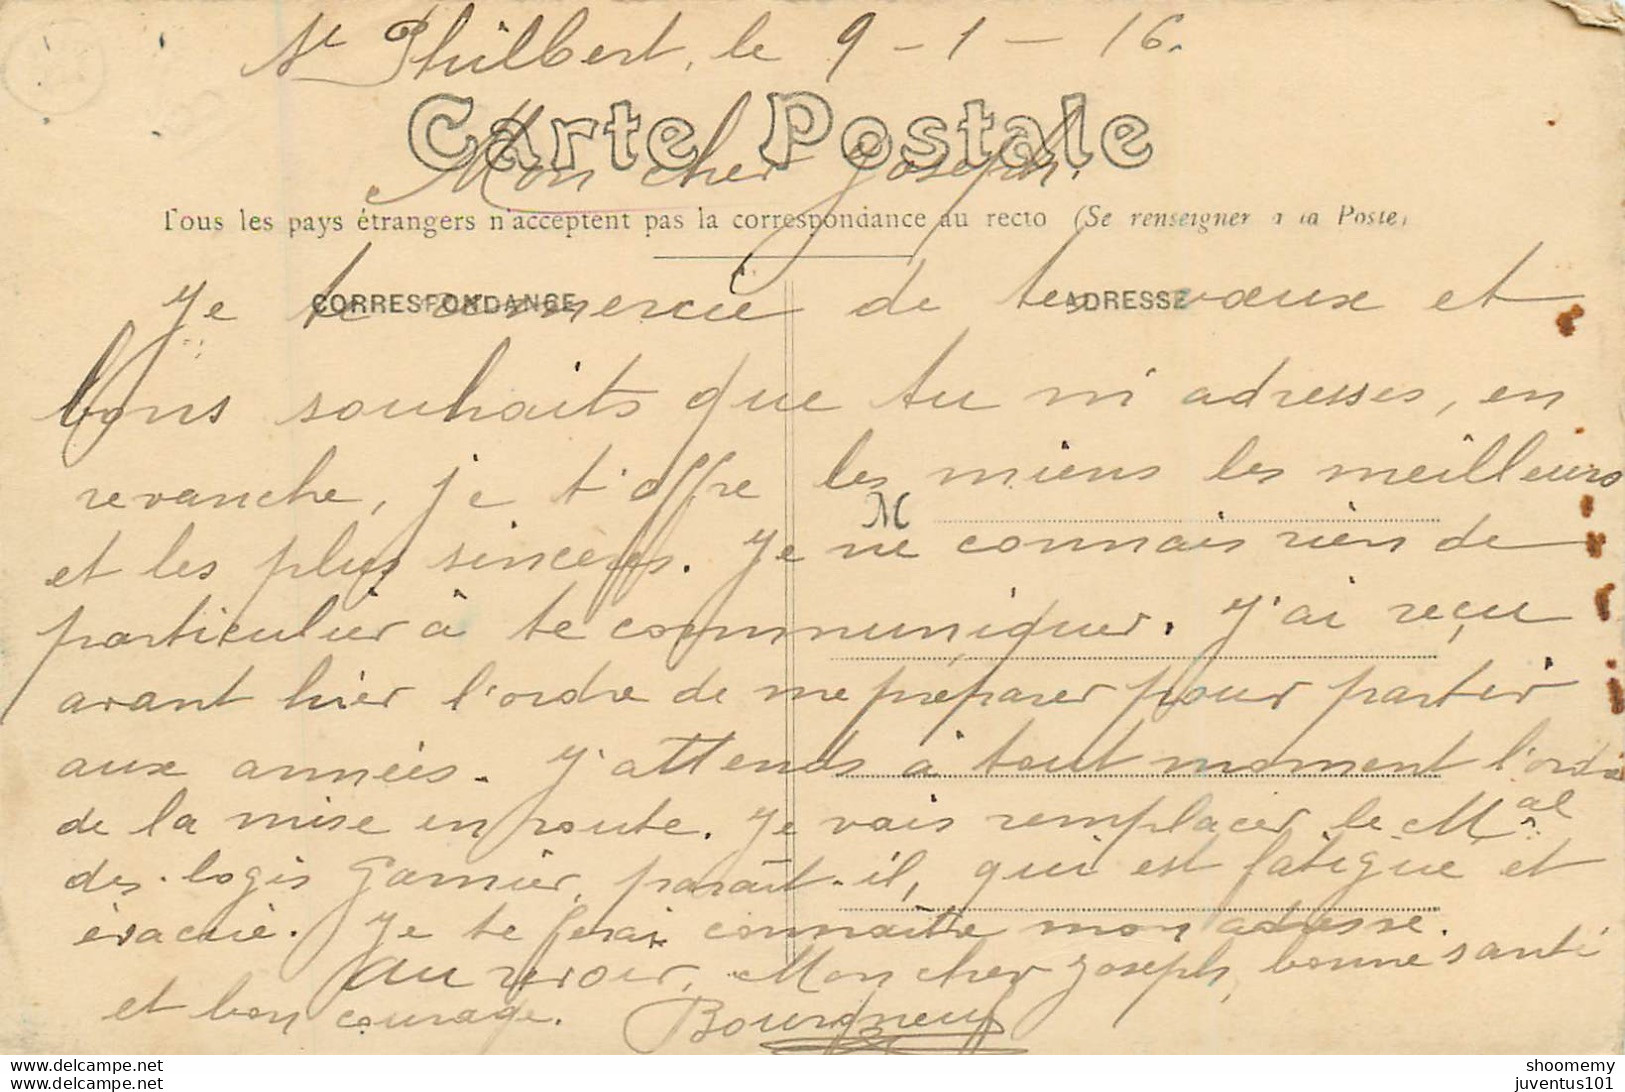 St Philbert, le 9-1-16.
Carte Postale
Mon cher Joseph.
Tous les pays étrangers n'acceptent pas la correspondance au recto (Se renseigner à la Poste)
CORRESPONDANCE
ADRESSE
Je te remercie de tes vœux et
bons souhaits que tu m'adresses, en
revanche, je t'offre les miens les meilleurs
M
et les plus sincères. Je ne connais rien de
particulier à te communiquer. J'ai reçu
avant hier l'ordre de me préparer pour partir
aux armées. J'attends à tout moment l'ordre
de la mise en route. Je vais remplacer le Mal
des logis Garnier, paraît-il, qui est fatigué et
évacué. Je te ferai connaître mon adresse.
Au revoir, Mon cher Joseph, bonne santé
et bon courage. Bourgneuf
shoomemy
juventus101
juventus101